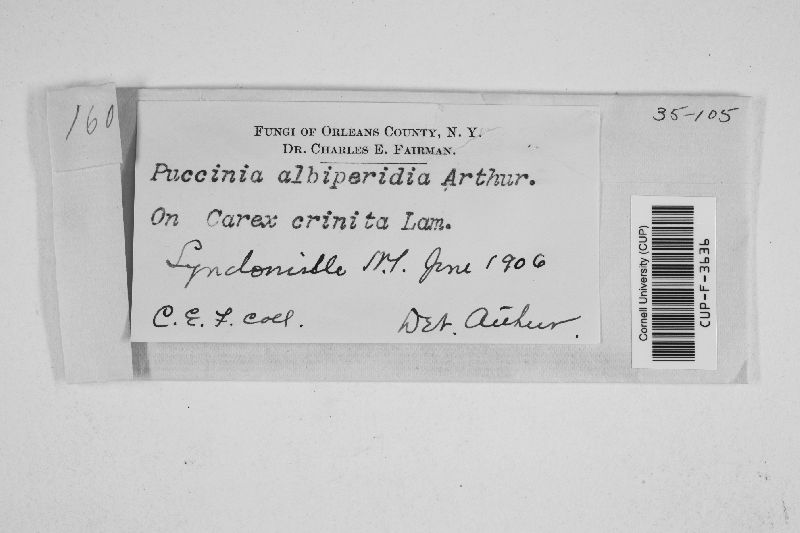 160
35-105
Fungi of Orleans County, N. Y.
Dr. Charles E. Fairman.
Puccinia albiperidia Arthur.
On Carex crinita Lam.
Lyndonville N.Y. June 1906
C. E. F. coll.
Det. Arthur.
Cornell University (CUP)
CUP-F-3636